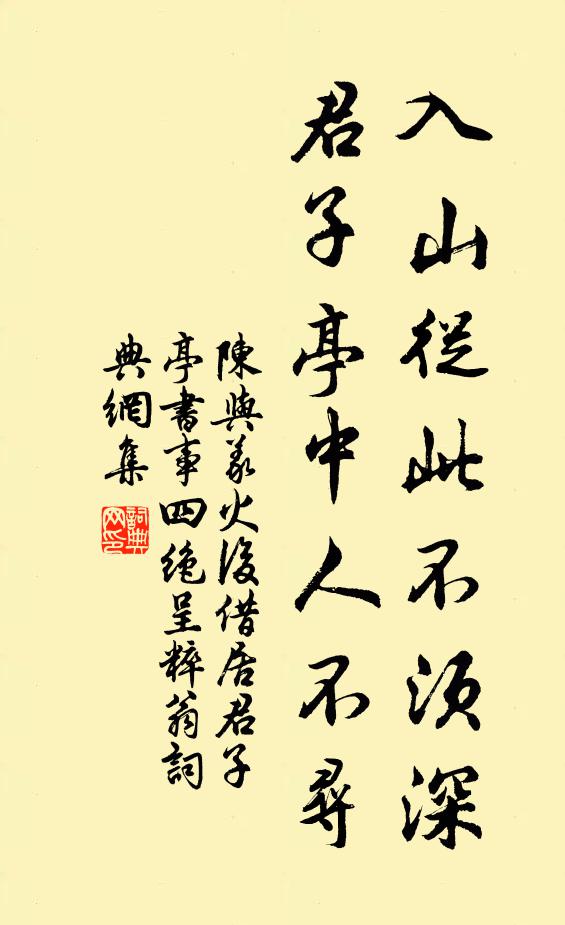 入山從此不須深
君子亭中人不尋
陳與義火後借居君子
亭書事四絶呈粹翁詞
典網集
詞典网印